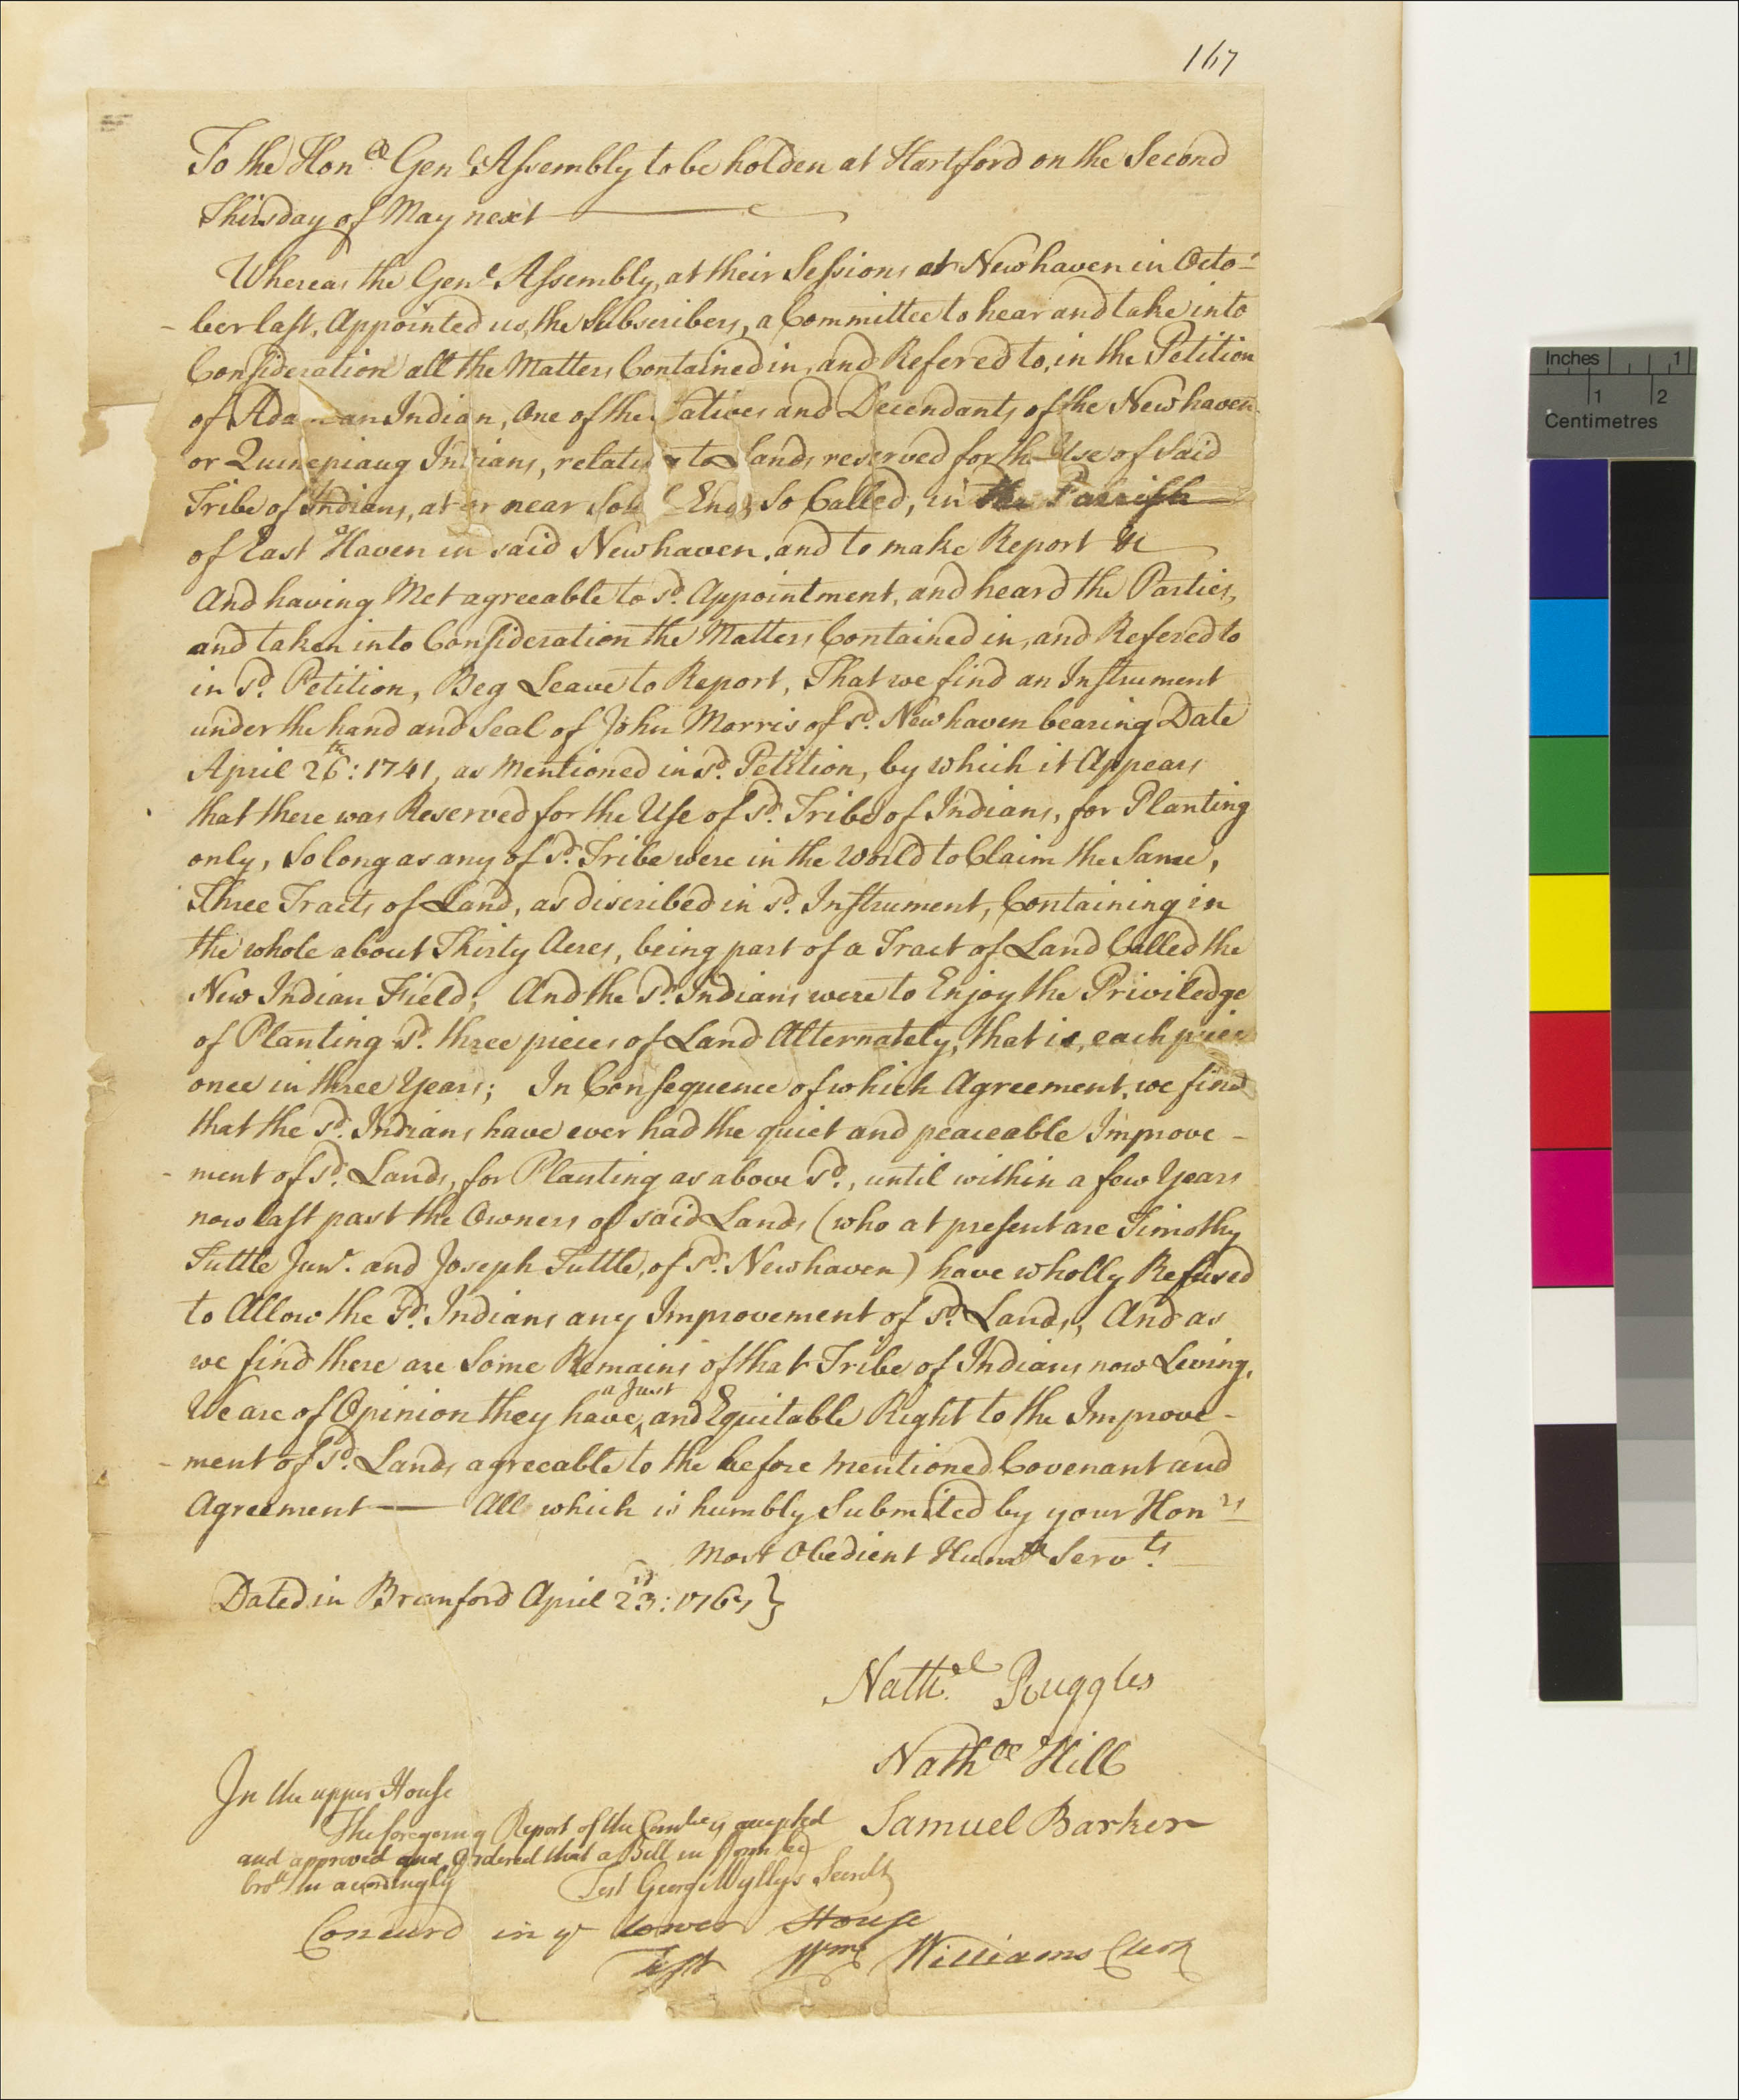 167
To the Hon.d Gen.l Assembly to be holden at Hartford on the Second
Thirsday of May next
Whereas the Gen.l Assembly, at their Sessions at Newhaven in Octo-
- ber last, Appointed us, the Subscribers, a Committee to hear and take into
Consideration all the Matters Contained in, and Refered to, in the Petition
of Adam an Indian, One of the Natives and Decendants of the Newhaven
or Quinepiaug Indians, relating to Lands reserved for the Use of Said
Tribe of Indians, at or near So End, So Called, in the Parrish
of East Haven in said Newhaven, and to make Report &c
And having Met agreeable to sd. Appointment, and heard the Parties,
and taken into Consideration the Matters Contained in, and Refered to
in sd. Petition, Beg Leave to Report, That we find an Instrument
under the hand and Seal of John Morris of sd. Newhaven bearing Date
April 26th: 1741, as Mentioned in sd. Petition, by which it Appears
that there was Reserved for the Use of sd. Tribe of Indians, for Planting
only, So long as any of sd. Tribe were in the World to Claim the Same,
Three Tracts of Land, as discribed in sd. Instrument, Containing in
the whole about Thirty Acres, being part of a Tract of Land Called the
New Indian Field; And the sd. Indians were to Enjoy the Priviledge
of Planting sd. three pieces of Land Alternately, that is, each piece
once in three Years; In Consequence of which Agreement, we find
that the sd. Indians have ever had the quiet and peaceable Improve -
- ment of sd. Lands, for Planting as above sd., until within a few Years
now last past the Owners of said Lands (who at present are Timothy
Tuttle Junr. and Joseph Tuttle, of sd. Newhaven) have wholly Refused
to Allow the sd. Indians any Improvement of sd. Lands, And as
we find there are Some Remains of that Tribe of Indians now Living,
We are of Opinion they have a Just and Equitable Right to the Improve -
- ment of sd. Lands agreeable to the before Mentioned Covenant and
Agreement — All which is humbly Submited by your Honrs
Most Obedient Humble Servts.
Dated in Branford April 23d: 1767 }
Nath.el Ruggles
Nathel Hill
Samuel Barker
In the upper House
The foregoing Report of the Comtee is accepted
and approved and Ordered that a Bill in Form be
brot in accordingly
Test George Wyllys Secrety
Concurd in ye lower House
Test Wm Williams Clerk
Inches 1
1 2
Centimetres